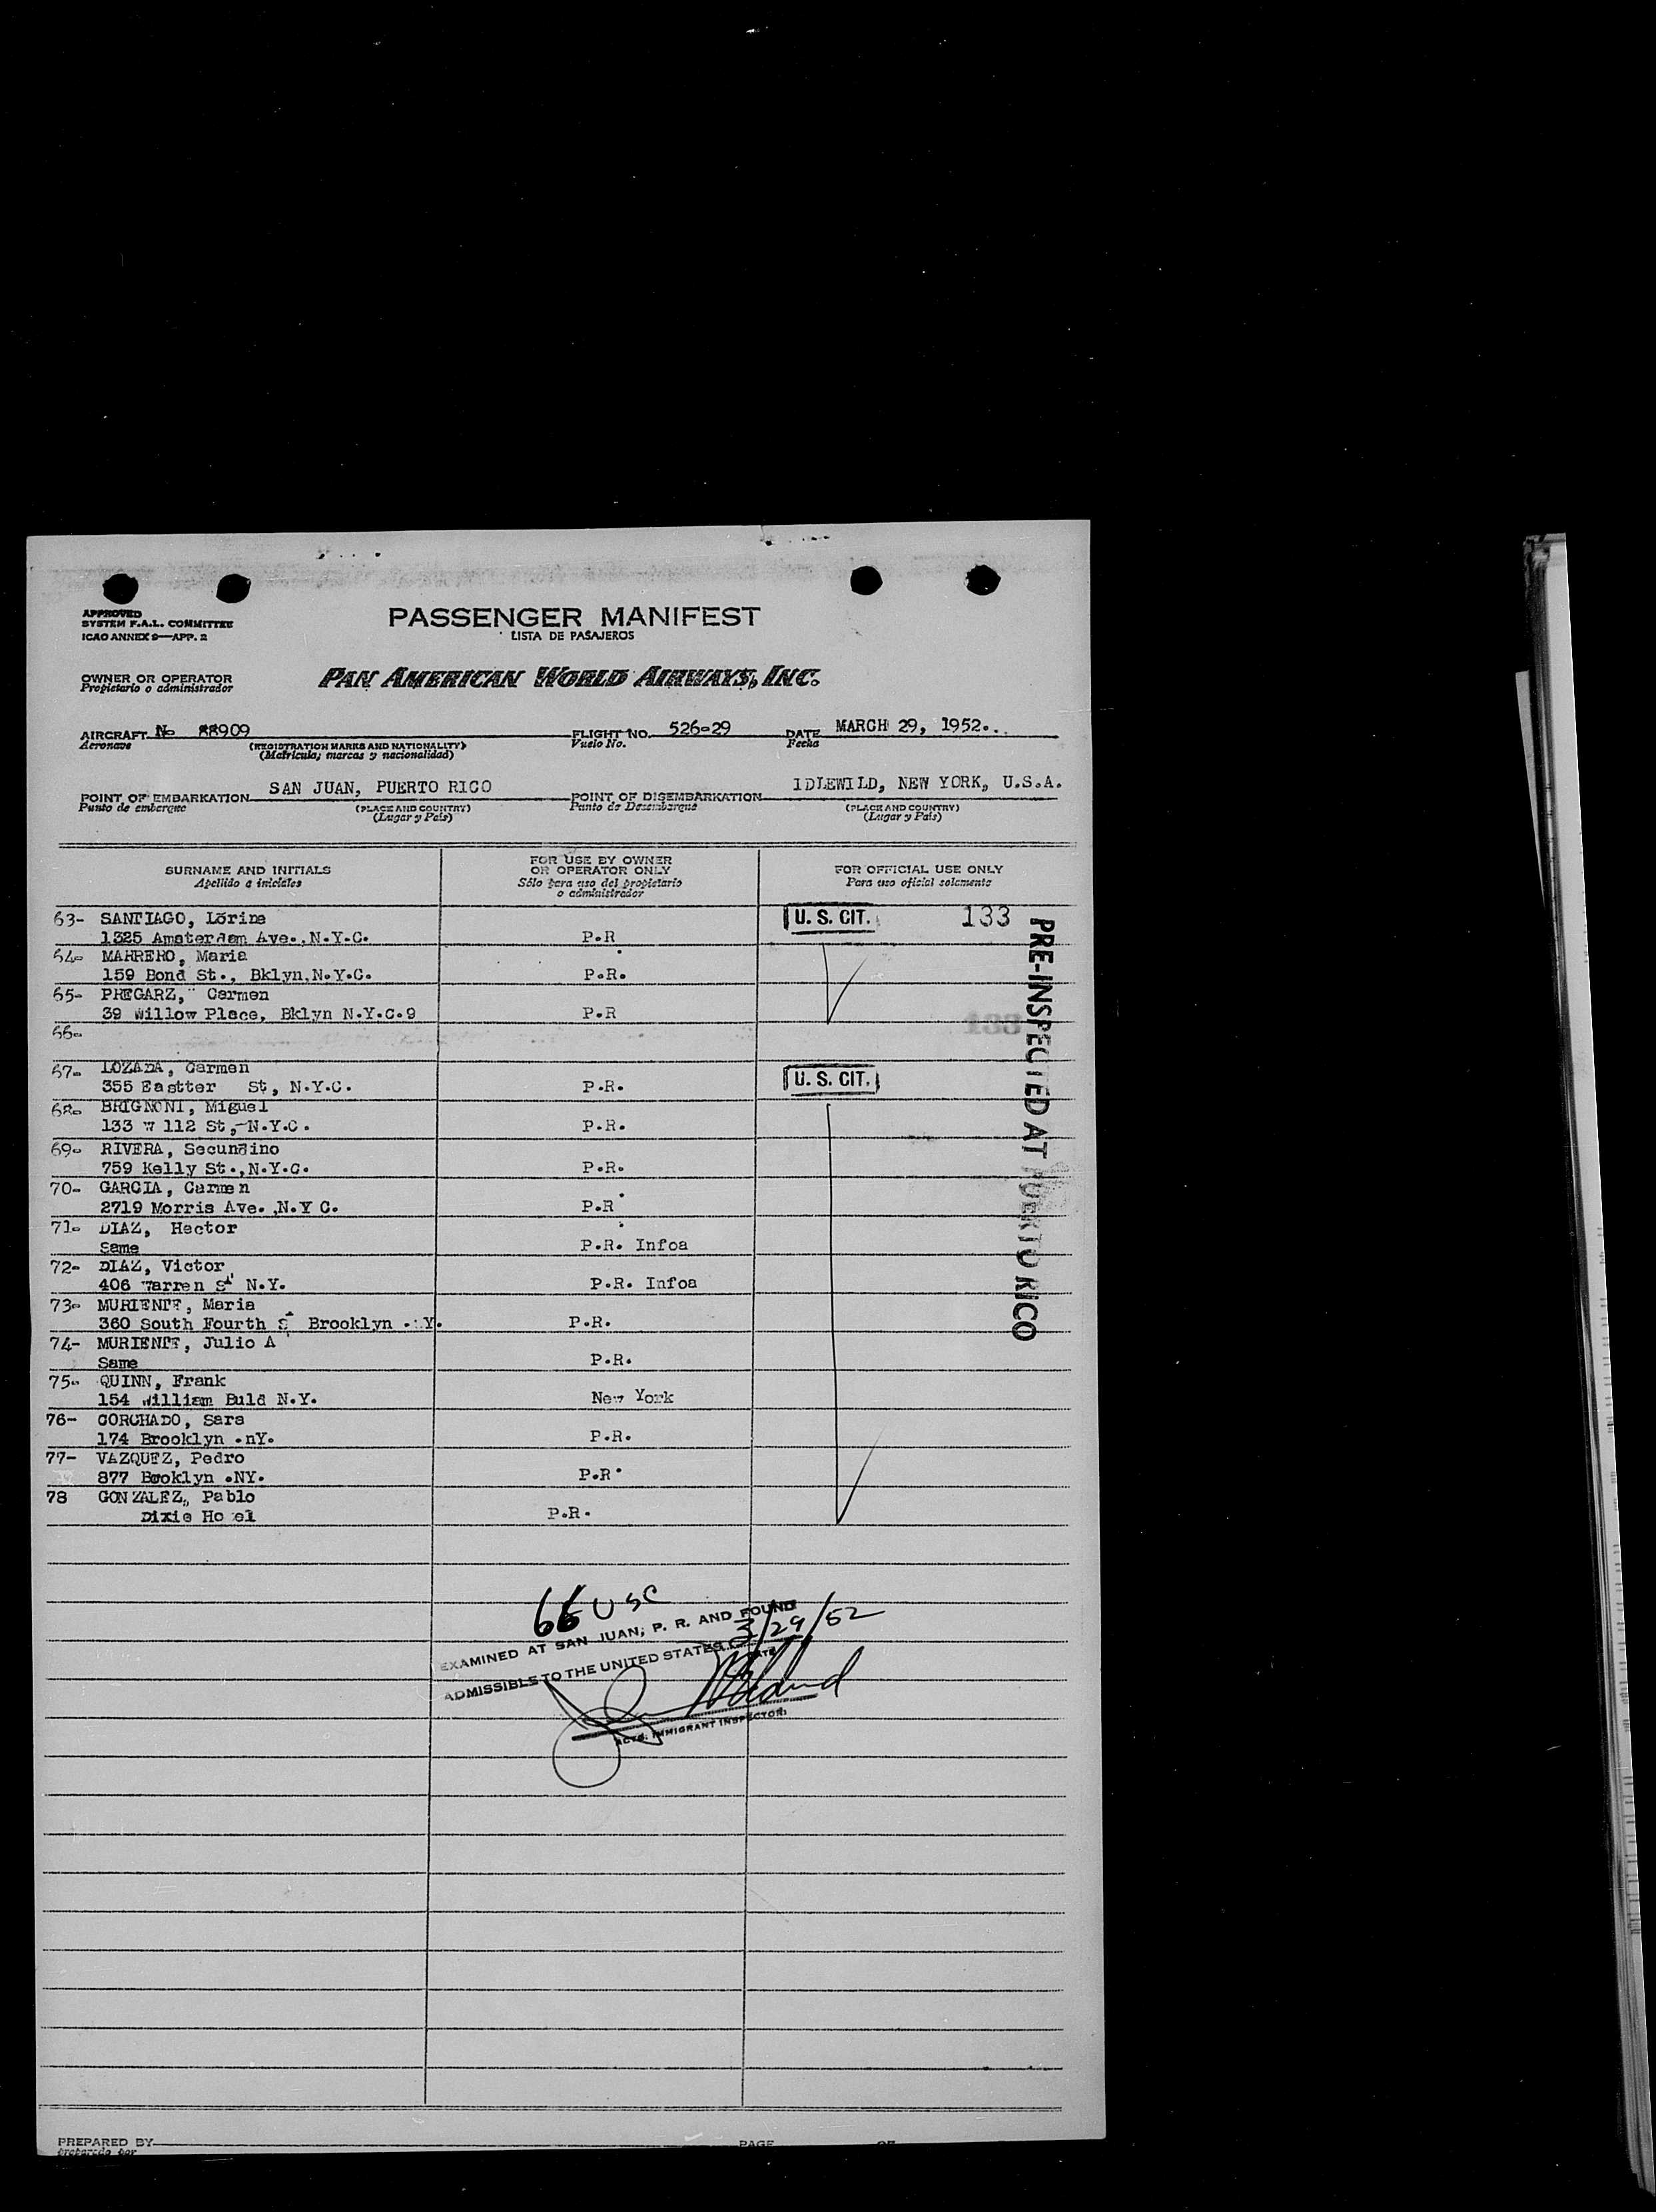 APPROVED
SYSTEM F.A.L. COMMITTEE
ICAO ANNEX 9—APP. 2
PASSENGER MANIFEST
LISTA DE PASAJEROS
OWNER OR OPERATOR
Propietario o administrador
PAN AMERICAN WORLD AIRWAYS, INC.
AIRCRAFT No 88909 FLIGHT NO. 526-29 DATE MARCH 29, 1952.
Aeronave (REGISTRATION MARKS AND NATIONALITY) Vuelo No. Fecha
(Matricula; marcas y nacionalidad)
POINT OF EMBARKATION SAN JUAN, PUERTO RICO POINT OF DISEMBARKATION IDLEWILD, NEW YORK, U.S.A.
Punto de embarque (PLACE AND COUNTRY) Punto de Desembarque (PLACE AND COUNTRY)
(Lugar y País) (Lugar y País)
SURNAME AND INITIALS FOR USE BY OWNER OR OPERATOR ONLY FOR OFFICIAL USE ONLY
Apellido e iniciales Sólo para uso del propietario o administrador Para uso oficial solamente
63- SANTIAGO, Lorine U. S. CIT. 133
1325 Amsterdam Ave., N.Y.C. P.R
64- MARRERO, Maria
159 Bond St., Bklyn, N.Y.C. P.R.
65- PREGARZ, Carmen
39 Willow Place, Bklyn N.Y.C.9 P.R
66- 133
67- LOZADA, Carmen U. S. CIT.
355 Eastter St, N.Y.C. P.R.
68- BRIGNONI, Miguel
133 W 112 St, N.Y.C. P.R.
69- RIVERA, Secundino
759 Kelly St., N.Y.C. P.R.
70- GARCIA, Carmen
2719 Morris Ave. ,N.Y C. P.R
71- DIAZ, Hector
Same P.R. Infoa
72- DIAZ, Victor
406 Warren St N.Y. P.R. Infoa
73- MURIENTE, Maria
360 South Fourth S Brooklyn . Y. P.R.
74- MURIENTE, Julio A
Same P.R.
75- QUINN, Frank
154 William Buld N.Y. New York
76- CORCHADO, Sara
174 Brooklyn .nY. P.R.
77- VAZQUEZ, Pedro
877 Brooklyn .NY. P.R
78 GONZALEZ, Pablo
Dixie Ho el P.R.
PRE-INSPECTED AT PUERTO RICO
66 USC
EXAMINED AT SAN JUAN, P. R. AND FOUND
3/29/52
ADMISSIBLE TO THE UNITED STATES
DATE
ACTG. IMMIGRANT INSPECTOR
PREPARED BY PAGE OF
Preparado por